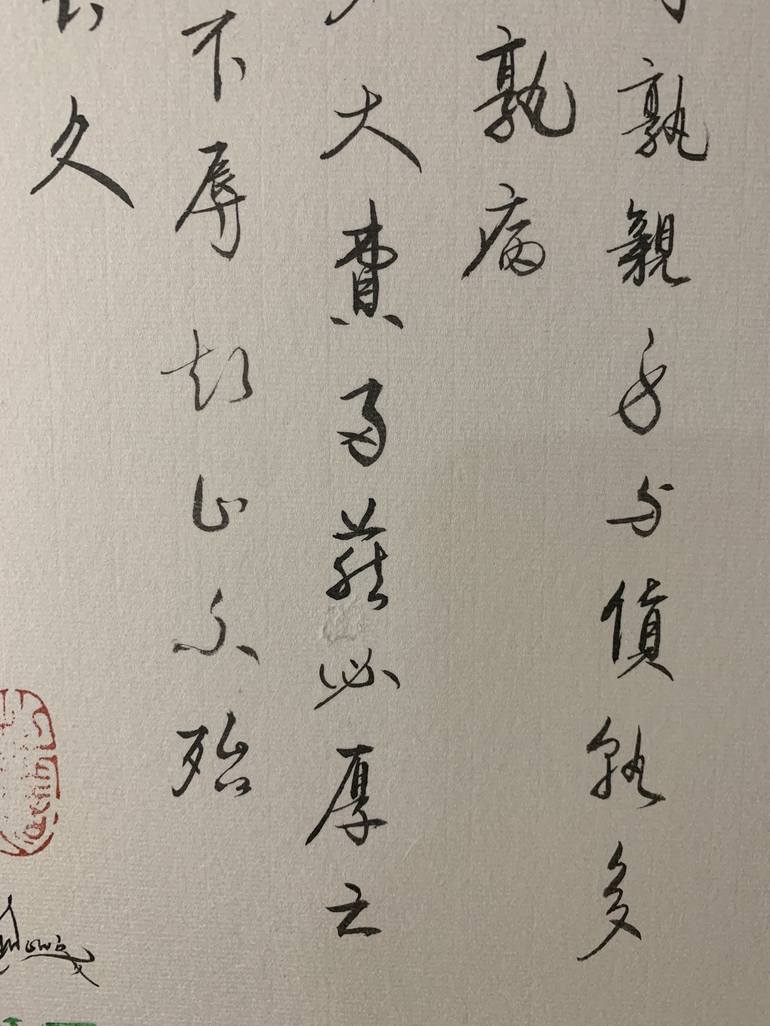 孰親身与貨孰多
孰病
大費多藏必厚亡
不辱知止不殆
久